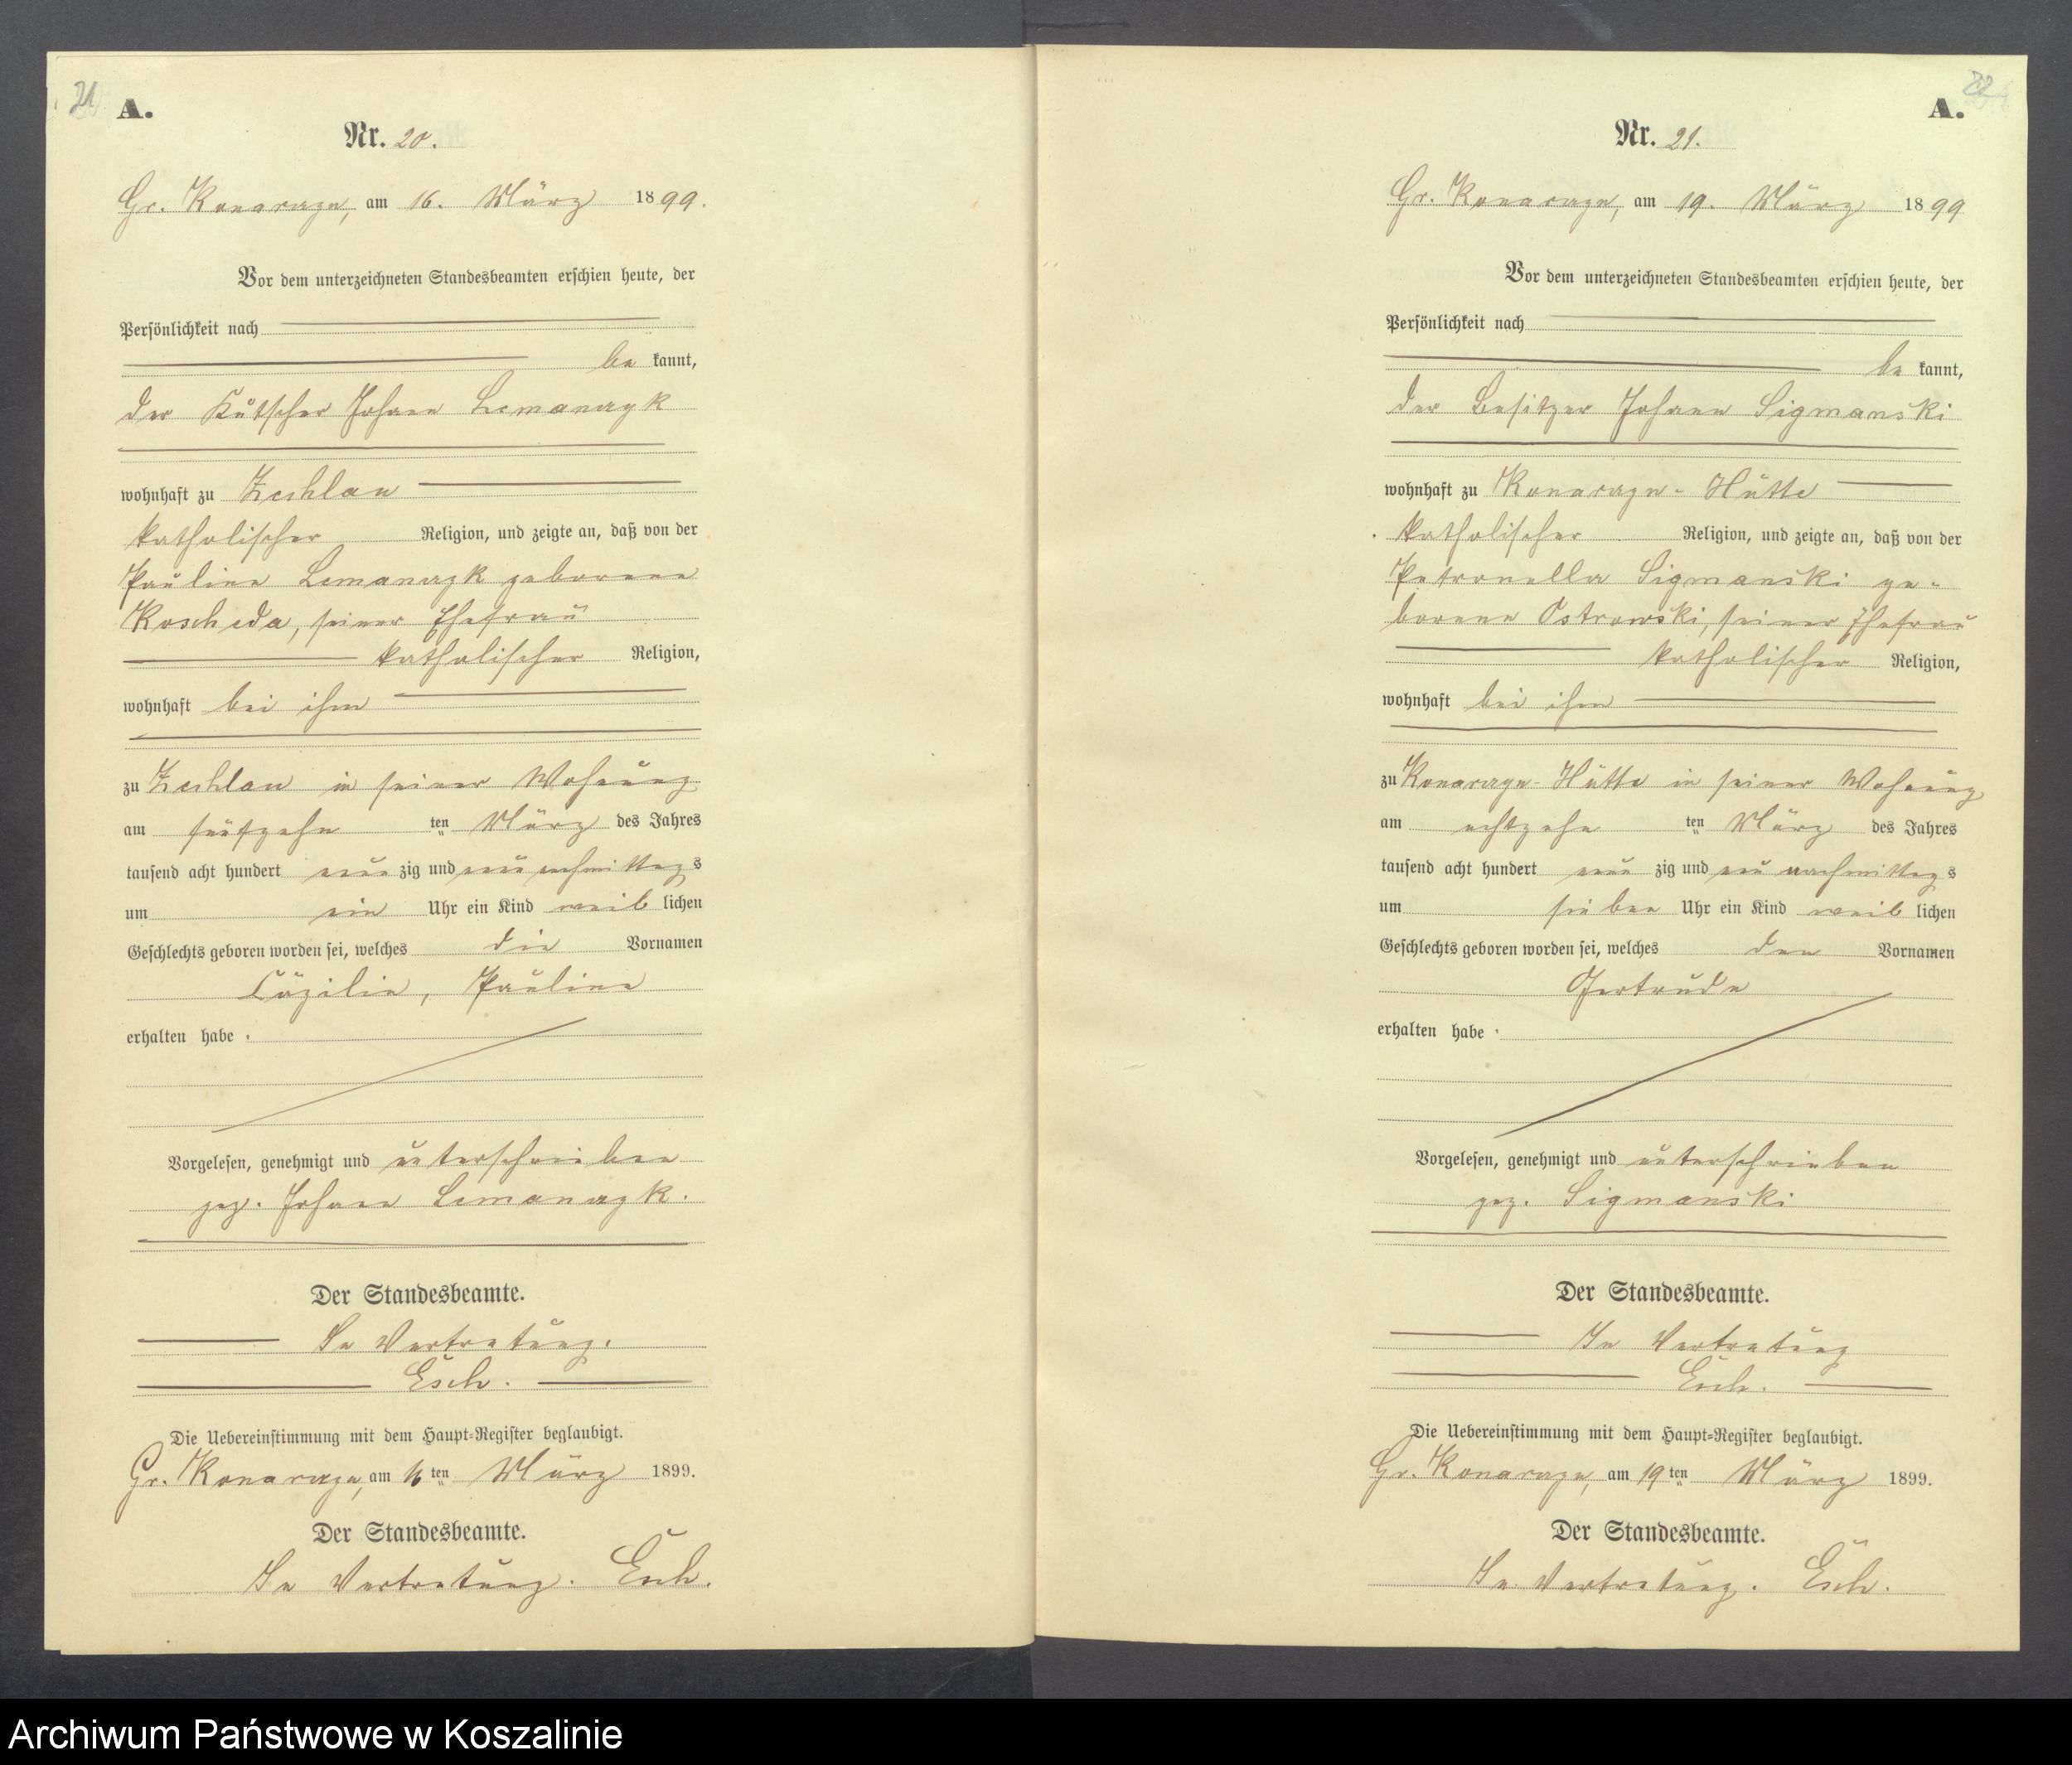 21
A.
Nr. 20.
Gr. Konarczyn, am 16. März 1899.
Vor dem unterzeichneten Standesbeamten erschien heute, der
Persönlichkeit nach
be kannt,
der Kutscher Johann Lemanczyk
wohnhaft zu Zechlau
katholischer Religion, und zeigte an, daß von der
Pauline Lemanczyk geborene
Koscheda, seiner Ehefrau
katholischer Religion,
wohnhaft bei ihm
zu Zechlau in seiner Wohnung
am fünfzehn ten März des Jahres
tausend acht hundert neun zig und neun nachmittags
um ein Uhr ein Kind weib lichen
Geschlechts geboren worden sei, welches die Vornamen
Cäzilie, Pauline
erhalten habe.
Vorgelesen, genehmigt und unterschrieben
gez. Johann Lemanczyk.
Der Standesbeamte.
In Vertretung.
Esch.
Die Uebereinstimmung mit dem Haupt-Register beglaubigt.
Gr. Konarczyn, am 16 ten März 1899.
Der Standesbeamte.
In Vertretung. Esch.
22
A.
Nr. 21.
Gr. Konarczyn, am 19. März 1899
Vor dem unterzeichneten Standesbeamten erschien heute, der
Persönlichkeit nach
be kannt,
der Besitzer Johann Sigmanski
wohnhaft zu Konarczyn-Hütte
katholischer Religion, und zeigte an, daß von der
Petronella Sigmanski ge-
borene Ostrowski, seiner Ehefrau
katholischer Religion,
wohnhaft bei ihm
zu Konarczyn-Hütte in seiner Wohnung
am achtzehn ten März des Jahres
tausend acht hundert neun zig und neun nachmittags
um sieben Uhr ein Kind weib lichen
Geschlechts geboren worden sei, welches den Vornamen
Gertrude
erhalten habe.
Vorgelesen, genehmigt und unterschrieben
gez. Sigmanski
Der Standesbeamte.
In Vertretung
Esch.
Die Uebereinstimmung mit dem Haupt-Register beglaubigt.
Gr. Konarczyn, am 19 ten März 1899.
Der Standesbeamte.
In Vertretung. Esch.
Archiwum Państwowe w Koszalinie